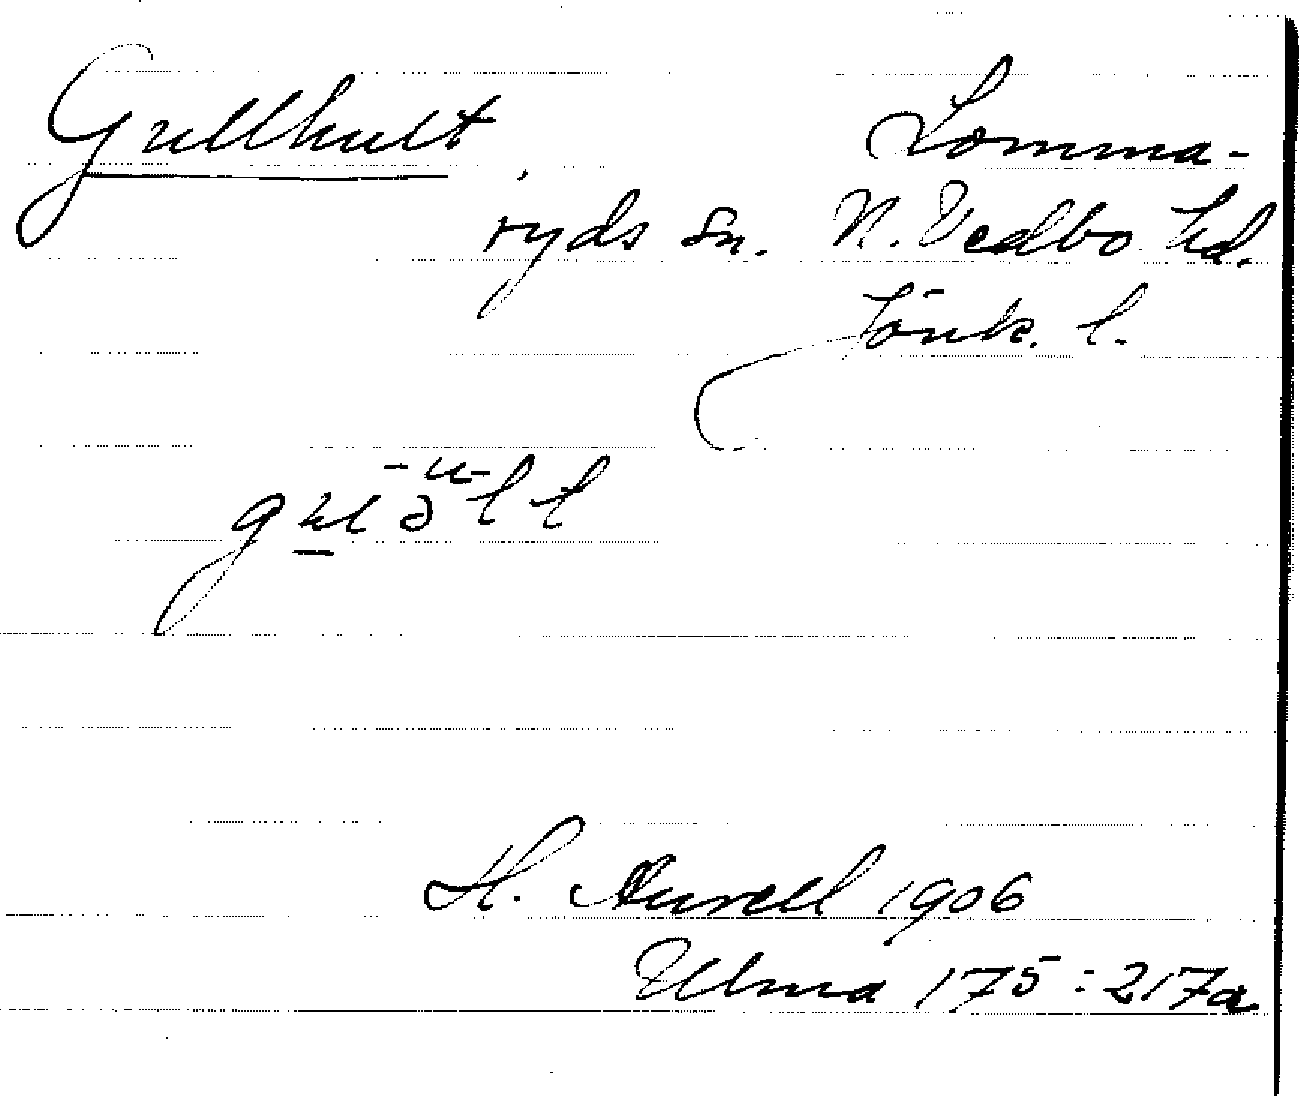 Gullhult, Lomma-
ryds sn. N. Vedbo hd.
Jönk. l.
H. Aurell 1906
Ulma 175:217a